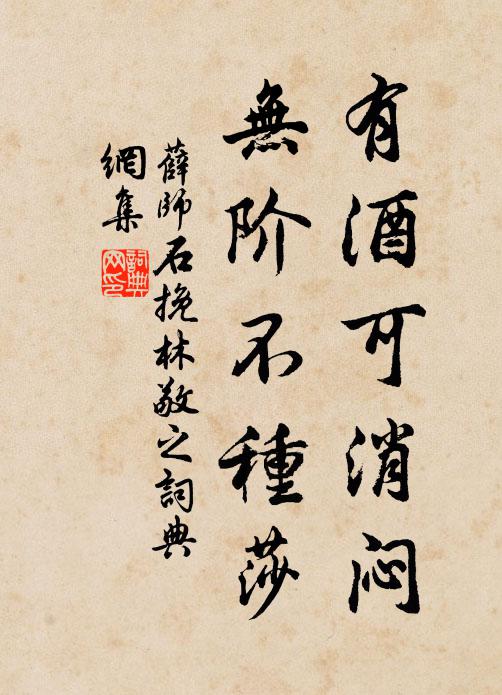 有酒可消闷
無阶不種莎
薛师石挽林敬之詞典
網集
詞典
网印